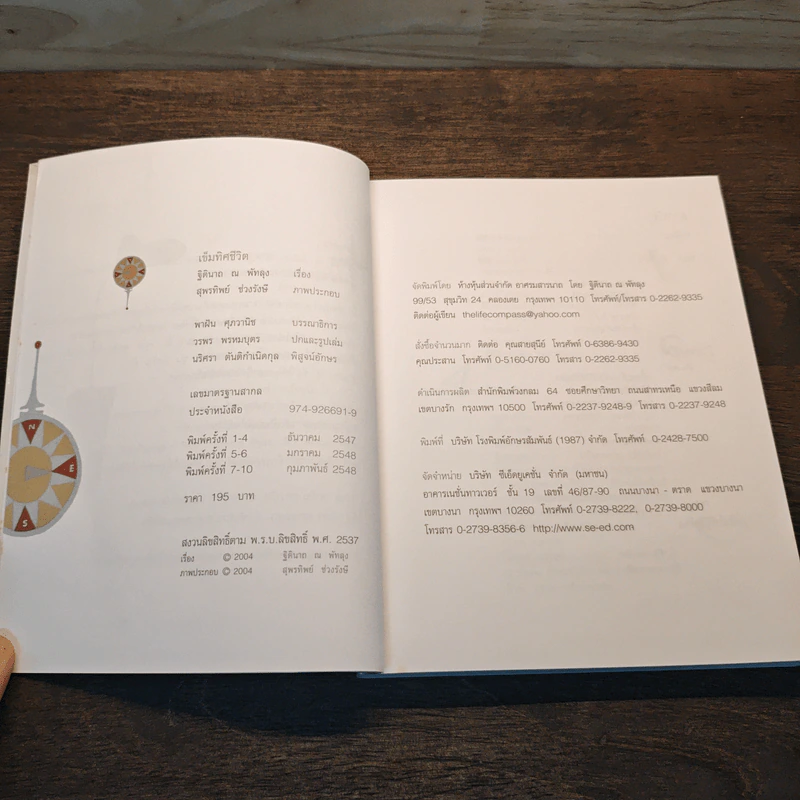 เข็มทิศชีวิต
ฐิตินาถ ณ พัทลุง เรื่อง
สุพรทิพย์ ช่วงรังษี ภาพประกอบ
พาฝัน ศุภวานิช บรรณาธิการ
วรพร พรหมบุตร ปกและรูปเล่ม
นริศรา ตันติกำเนิดกุล พิสูจน์อักษร
เลขมาตรฐานสากล
ประจำหนังสือ 974-926691-9
พิมพ์ครั้งที่ 1-4 ธันวาคม 2547
พิมพ์ครั้งที่ 5-6 มกราคม 2548
พิมพ์ครั้งที่ 7-10 กุมภาพันธ์ 2548
ราคา 195 บาท
สงวนลิขสิทธิ์ตาม พ.ร.บ.ลิขสิทธิ์ พ.ศ. 2537
เรื่อง © 2004 ฐิตินาถ ณ พัทลุง
ภาพประกอบ © 2004 สุพรทิพย์ ช่วงรังษี
N
E
S
จัดพิมพ์โดย ห้างหุ้นส่วนจำกัด อาศรมสาวนาถ โดย ฐิตินาถ ณ พัทลุง
99/53 สุขุมวิท 24 คลองเตย กรุงเทพฯ 10110 โทรศัพท์/โทรสาร 0-2262-9335
ติดต่อผู้เขียน thelifecompass@yahoo.com
สั่งซื้อจำนวนมาก ติดต่อ คุณสายสุนีย์ โทรศัพท์ 0-6386-9430
คุณประสาน โทรศัพท์ 0-5160-0760 โทรสาร 0-2262-9335
ดำเนินการผลิต สำนักพิมพ์วงกลม 64 ซอยศึกษาวิทยา ถนนสาทรเหนือ แขวงสีลม
เขตบางรัก กรุงเทพฯ 10500 โทรศัพท์ 0-2237-9248-9 โทรสาร 0-2237-9248
พิมพ์ที่ บริษัท โรงพิมพ์อักษรสัมพันธ์ (1987) จำกัด โทรศัพท์ 0-2428-7500
จัดจำหน่าย บริษัท ซีเอ็ดยูเคชั่น จำกัด (มหาชน)
อาคารเนชั่นทาวเวอร์ ชั้น 19 เลขที่ 46/87-90 ถนนบางนา - ตราด แขวงบางนา
เขตบางนา กรุงเทพฯ 10260 โทรศัพท์ 0-2739-8222, 0-2739-8000
โทรสาร 0-2739-8356-6 http://www.se-ed.com